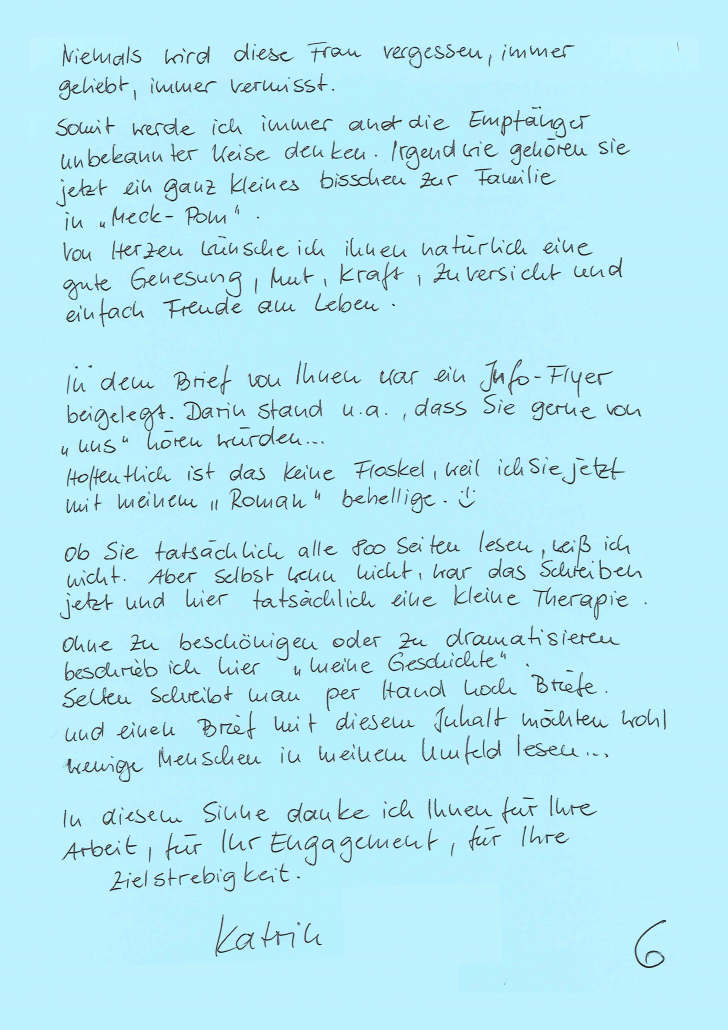 Niemals wird diese Frau vergessen, immer
geliebt, immer vermisst.
Somit werde ich immer an die Empfänger
unbekannter Weise denken. Irgendwie gehören sie
jetzt ein ganz kleines bisschen zur Familie
in „Meck-Pom".
Von Herzen wünsche ich ihnen natürlich eine
gute Genesung, Mut, Kraft, Zuversicht und
einfach Freude am Leben.
In dem Brief von Ihnen war ein Info-Flyer
beigelegt. Darin stand u.a., dass Sie gerne von
„uns" hören würden...
Hoffentlich ist das keine Floskel, weil ich Sie jetzt
mit meinem „Roman" behellige. :)
Ob Sie tatsächlich alle 800 Seiten lesen, weiß ich
nicht. Aber selbst wenn nicht, war das Schreiben
jetzt und hier tatsächlich eine kleine Therapie.
Ohne zu beschönigen oder zu dramatisieren
beschrieb ich hier „meine Geschichte".
Selten schreibt man per Hand noch Briefe.
Und einen Brief mit diesem Inhalt möchten wohl
wenige Menschen in meinem Umfeld lesen...
In diesem Sinne danke ich Ihnen für Ihre
Arbeit, für Ihr Engagement, für Ihre
Zielstrebigkeit.
Katrin
6